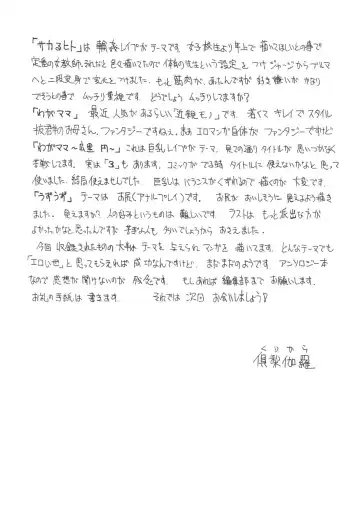 「サカるヒト」は 輪姦レイプがテーマです。女子校生より年上で描いてほしいとの事で
定番の女教師。それだと色々描いてたので体育の先生という設定をつけジャージからブルマ
へと二段変身で変化をつけました。もっと筋肉が、あったんですが好き嫌いがかなり
でそうとの事でムッチリ重視です。どうでしょうムッチリしてますか?
「わがママ」 最近人気があるらしい「近親モノ」です。若くてキレイでスタイル
抜群のお母さん。ファンタジーですねぇ。まぁエロマンガ自体がファンタジーですけど
「わがママ〜広里 円〜」これは巨乳レイプがテーマ。見ての通りタイトルが思いつかなく
苦戦してます。実は「3」も あります。コミックがでる時タイトルに使えないかなと思って
使いました。結局使えませんでした。巨乳はバランスがくずれるので描くのが大変です。
「うずうず」テーマはお尻(アナルプレイ)です。お尻がおいしそうに見えるよう描き
ました。見えますか?人の好みというものは難しいです。ラストはもっと派出な方が
よかったかなと思ったんですが
今回収録されたものの大半はテーマを与えられてマンガを描いてます。どんなテーマでも
「エロいぜ」と思ってもらえれば成功なんですけど、まだまだのようです。アンソロジー本
なので感想が聞けないのが残念です。もしあれば編集部までお願いします。
お礼の手紙は書きます。 それでは次回お会いしましょう!
くりから
倶梨伽羅